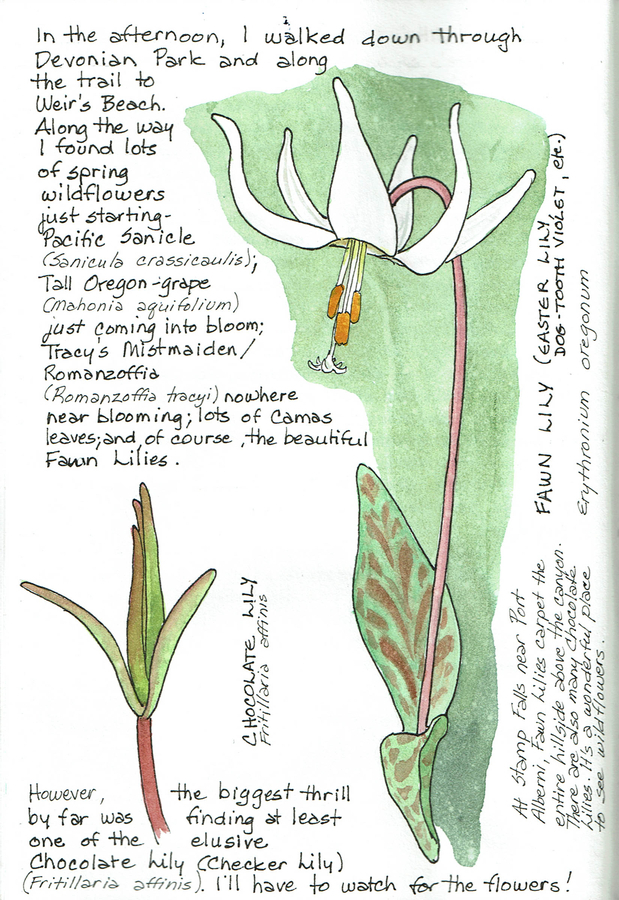 In the afternoon, I walked down through
Devonian Park and along
the trail to
Weir's Beach.
Along the way
I found lots
of spring
wildflowers
just starting-
Pacific Sanicle
(Sanicula crassicaulis);
Tall Oregon-grape
(Mahonia aquifolium)
just coming into bloom;
Tracy's Mistmaiden/
Romanzoffia
(Romanzoffia tracyi) nowhere
near blooming; lots of Camas
leaves; and, of course, the beautiful
Fawn Lilies.
FAWN LILY (EASTER LILY
DOG-TOOTH VIOLET, etc.)
Erythronium oregonum
At Stamp Falls near Port
Alberni, Fawn Lilies carpet the
entire hillside above the canyon.
There are also many Chocolate
Lilies. It's a wonderful place
to see wildflowers.
CHOCOLATE LILY
Fritillaria affinis
However, the biggest thrill
by far was finding at least
one of the elusive
Chocolate Lily (Checker Lily)
(Fritillaria affinis). I'll have to watch for the flowers!